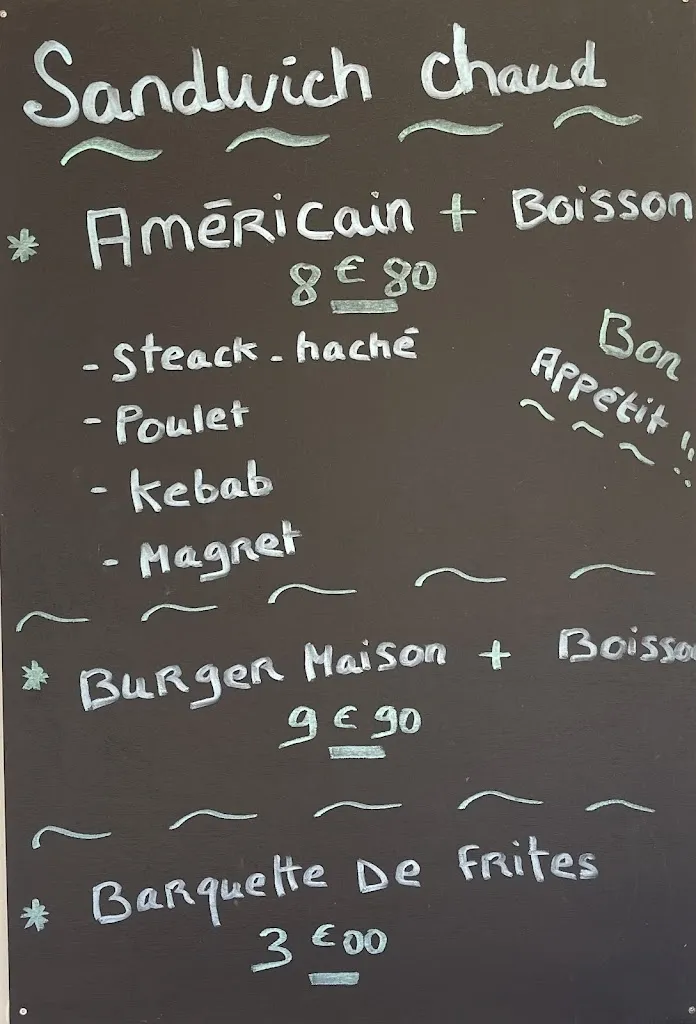 Sandwich chaud
* Américain + Boisson
8 € 80
- Steack-haché
- Poulet
- Kebab
- Magret
Bon
Appétit !!
* Burger Maison + Boisso
9 € 90
* Barquette De Frites
3 € 00